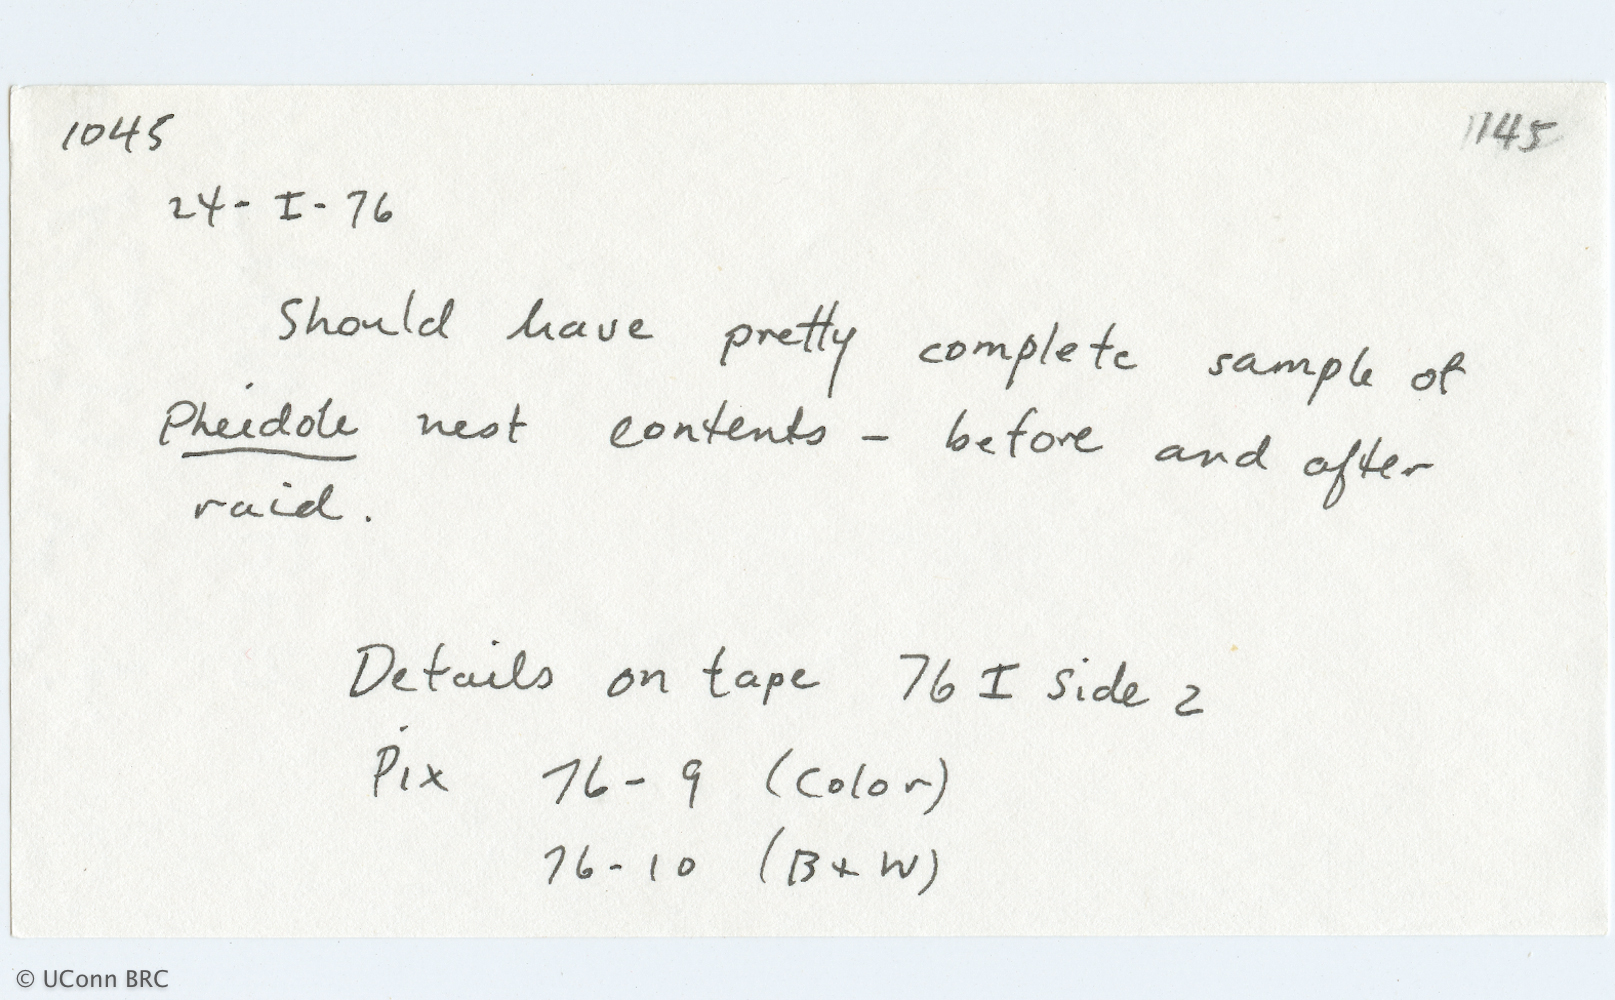 1045 1145
24-I-76
Should have pretty complete sample of
Pheidole nest contents - before and after
raid.
Details on tape 76 I side 2
Pix 76-9 (Color)
76-10 (B+W)
© UConn BRC